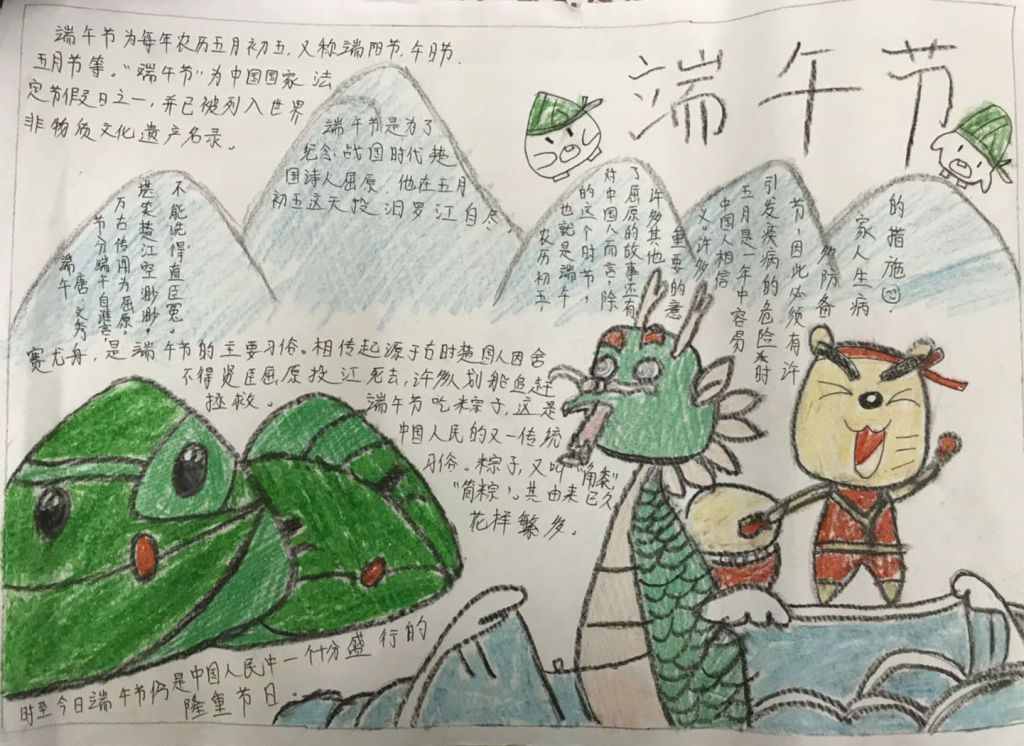 端午节
端午节为每年农历五月初五,又称端阳节、午日节、
五月节等。“端午节”为中国国家法
定节假日之一,并已被列入世界
非物质文化遗产名录。
端午节是为了
纪念战国时代楚
国诗人屈原,他在五月
初五这天投汨罗江自尽,
端午
唐·文秀
节分端午自谁言,
万古传闻为屈原。
堪笑楚江空渺渺,
不能洗得直臣冤。
农历初五,
也就是端午
的这个时节,
对中国人而言,除
了屈原的故事还有
许多其他
重要的意
义。许多
中国人相信
五月是一年中容易
引发疾病的危险时
节,因此必须有许
多防备
家人生病
的措施
赛尤舟,是端午节的主要习俗。相传起源于古时楚国人因舍
不得贤臣屈原投江死去,许多人划船追赶
拯救。
端午节吃粽子,这是
中国人民的又一传统
习俗。粽子,又叫“角黍”
“筒粽”。其由来已久
花样繁多。
时至今日端午节仍是中国人民中一个十分盛行的
隆重节日.